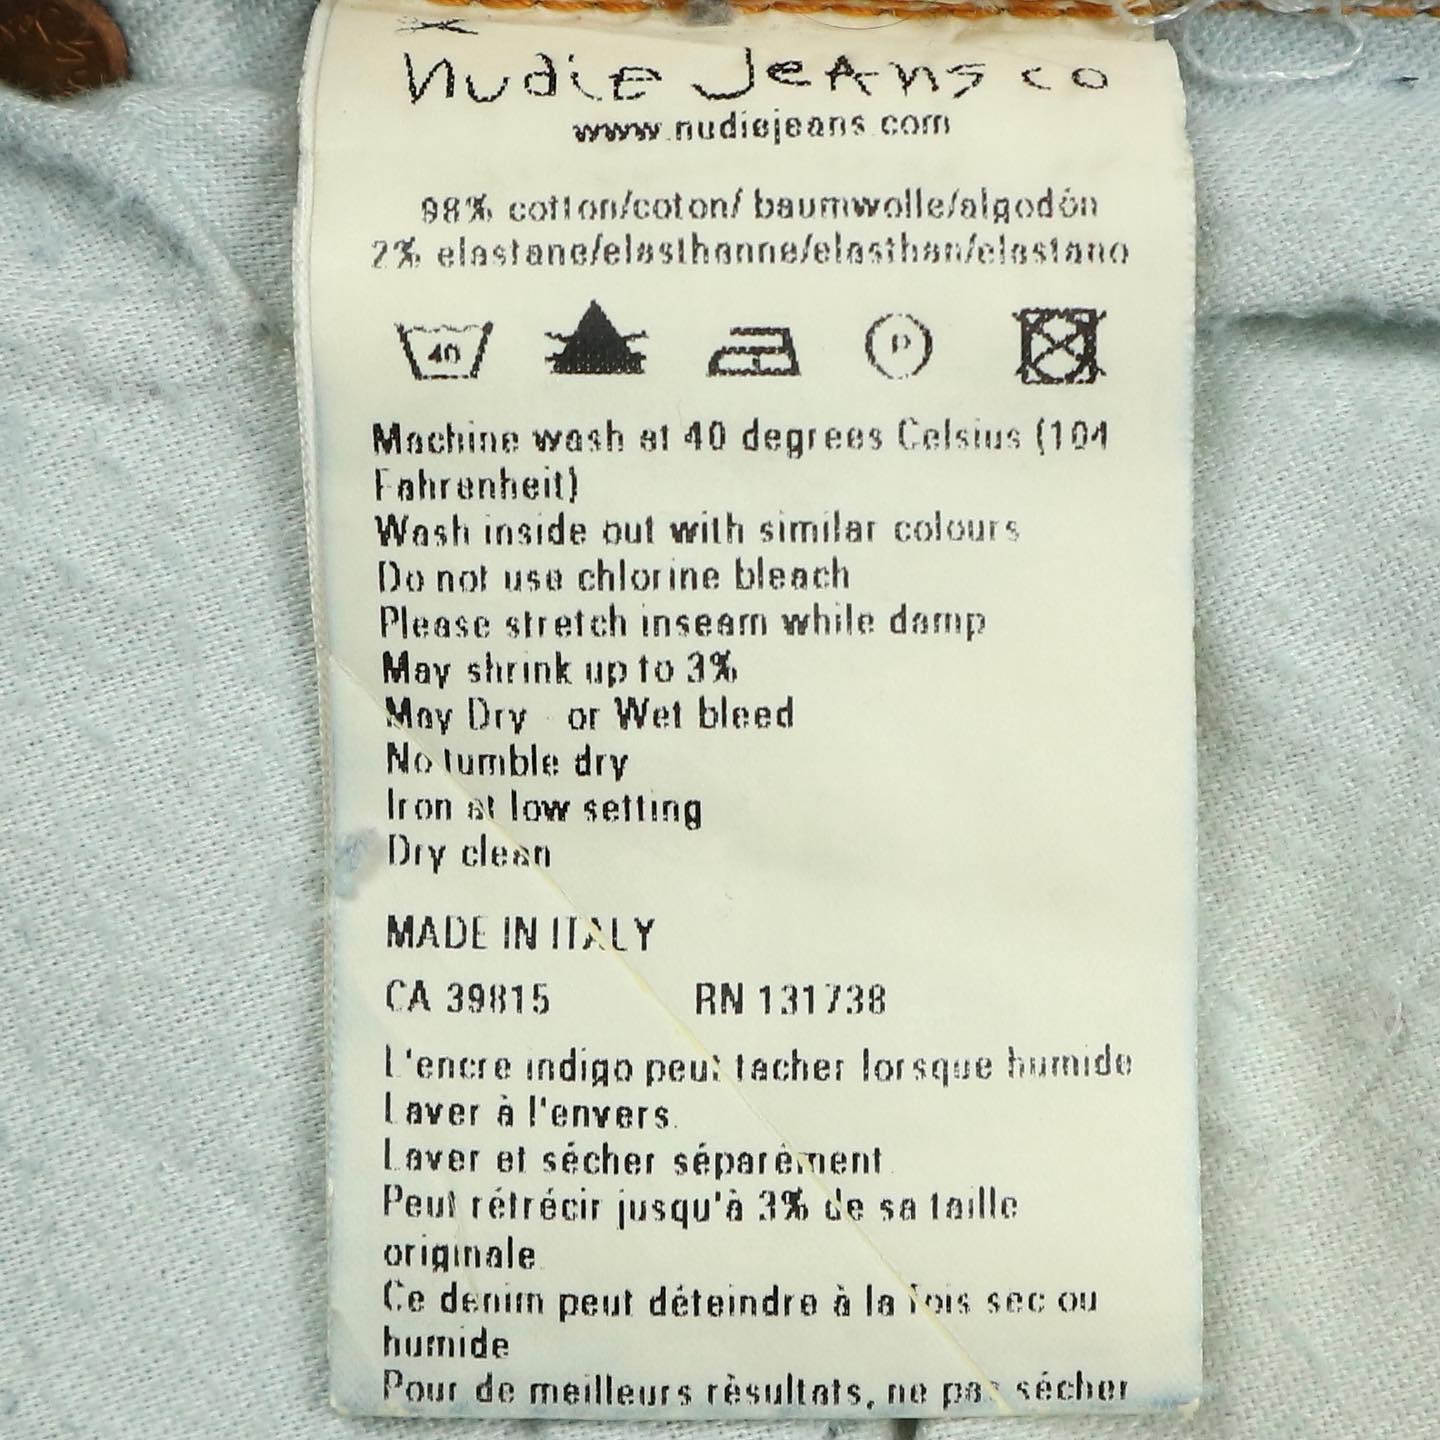 Nudie Jeans co
www.nudiejeans.com
98% cotton/coton/ baumwolle/algodón
2% elastane/elasthanne/elasthan/elastano
40
P
Machine wash at 40 degrees Celsius (104
Fahrenheit)
Wash inside out with similar colours
Do not use chlorine bleach
Please stretch inseam while damp
May shrink up to 3%
May Dry or Wet bleed
No tumble dry
Iron at low setting
Dry clean
MADE IN ITALY
CA 39815 RN 131738
L'encre indigo peut tacher lorsque humide
Laver à l'envers.
Laver et sécher séparément
Peut rétrécir jusqu'à 3% de sa taille
originale
Ce denim peut déteindre à la fois sec ou
humide
Pour de meilleurs rèsultats, ne pas sécher